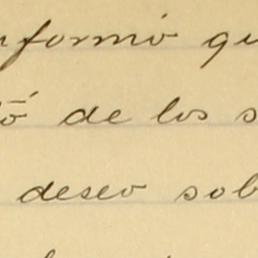 nformó qu
ó de los s
deseo sob